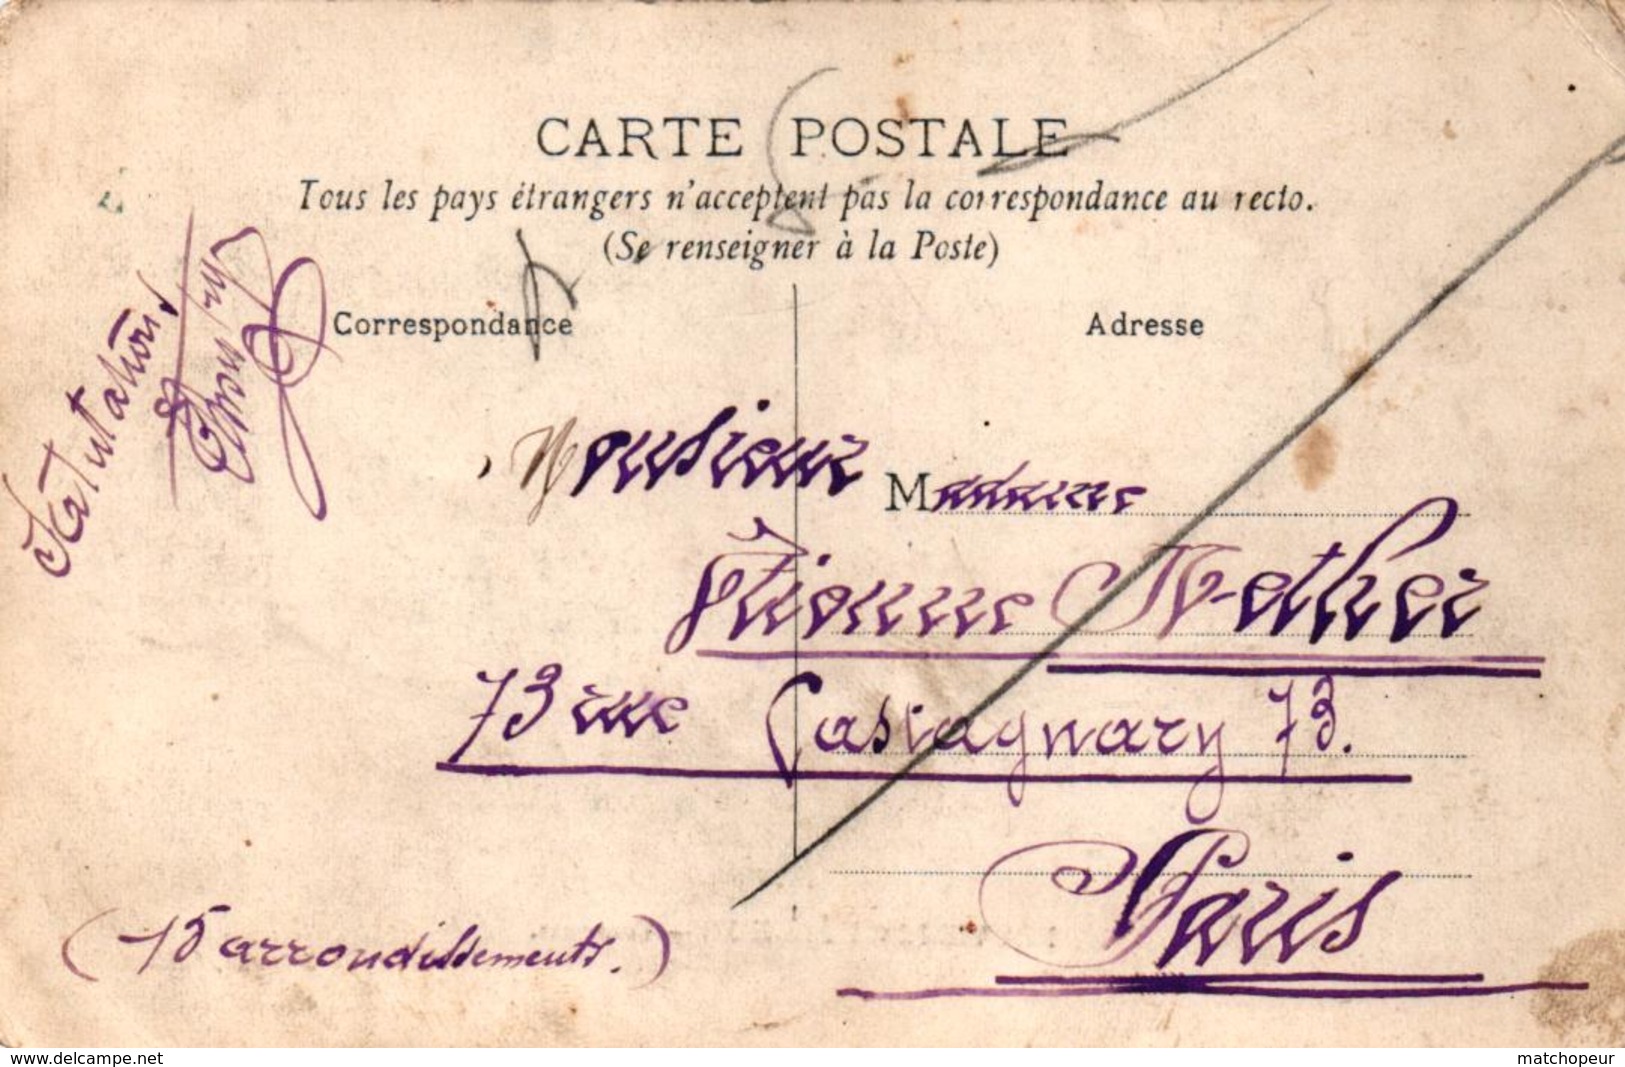 CARTE POSTALE
Tous les pays étrangers n'acceptent pas la correspondance au recto.
(Se renseigner à la Poste)
Correspondance
Adresse
Salutations
Monsieur
Madame
Etienne
73 Castagnary 73.
Paris
(15 arrondissements.)
www.delcampe.net
matchopeur